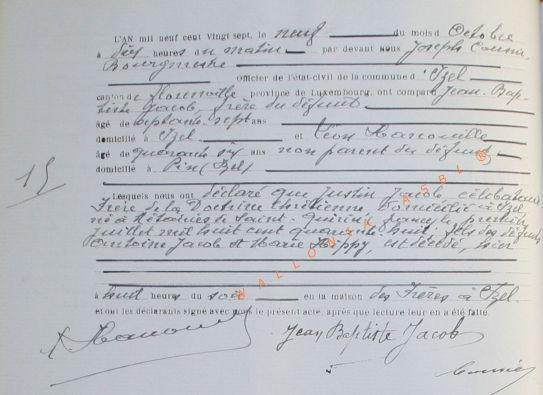 L'AN mil neuf cent vingt sept, le neuf du mois d'Octobre
à dix heures du matin par devant nous Joseph
Bourgmestre
Officier de l'état-civil de la commune d'Izel
canton de Florenville, province de Luxembourg, ont comparu Jean-Bap-
tiste Jacob, frère du défunt
âgé de septante sept ans
domicilié à Izel et Léon
âgé de quarante six ans non parent du défunt
domicilié à Pin (Izel)
15
Lesquels nous ont déclaré que Justin Jacob, célibataire
Frère de la Doctrine Chrétienne, domicilié à Izel
né à Saint Quirin, le premier
juillet mil huit cent quarante huit, fils des défunts
Antoine Jacob et Marie est décédé, hier
à huit heures du soir en la maison des Frères à Izel
et ont les déclarants signé avec nous le présent acte, après que lecture leur en a été faite.
Jean Baptiste Jacob
WALLONIA ASBL ®